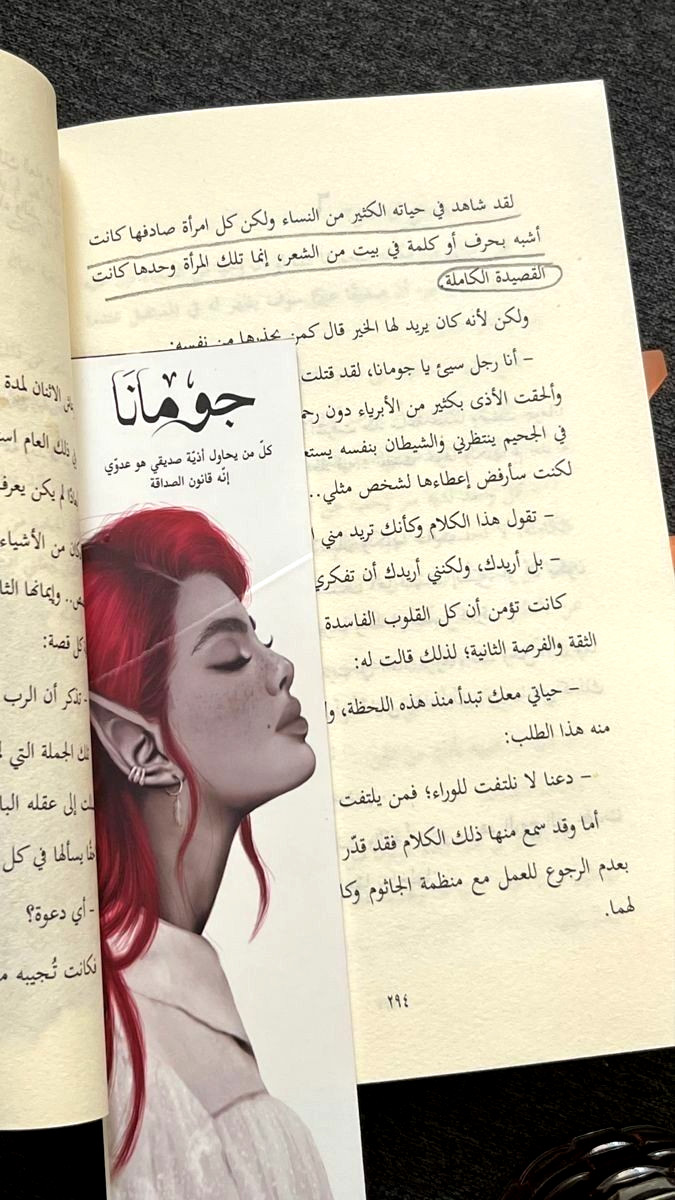 لقد شاهد في حياته الكثير من النساء ولكن كل امرأة صادفها كانت
أشبه بحرف أو كلمة في بيت من الشعر، إنما تلك المرأة وحدها كانت
القصيدة الكاملة
ولكن لأنه كان يريد لها الخير قال كمن يحذرها من نفسه:
– أنا رجل سيئ يا جومانا، لقد قتلت
وألحقت الأذى بكثير من الأبرياء دون
في الجحيم ينتظرني والشيطان بنفسه
لكنت سأرفض إعطاءها لشخص مثلي..
– تقول هذا الكلام وكأنك تريد مني
– بل أريدك، ولكنني أريدك أن تفكري
كانت تؤمن أن كل القلوب الفاسدة
الثقة والفرصة الثانية؛ لذلك قالت له:
– حياتي معك تبدأ منذ هذه اللحظة،
منه هذا الطلب:
– دعنا لا نلتفت للوراء؛ فمن يلتفت
أما وقد سمع منها ذلك الكلام فقد قدّر
بعدم الرجوع للعمل مع منظمة الجاثوم
لهما.
٢٩٤
جومانَا
كلّ من يحاول أذيّة صديقي هو عدوّي
إنّه قانون الصداقة
الاثنان لمدة
ذلك العام
لم يكن يعرف
من الأشياء
وإيمانها
كل قصة:
– تذكر أن الرب
تلك الجملة التي
إلى عقله
يسألها في كل
– أي دعوة؟
فكانت تُجيبه